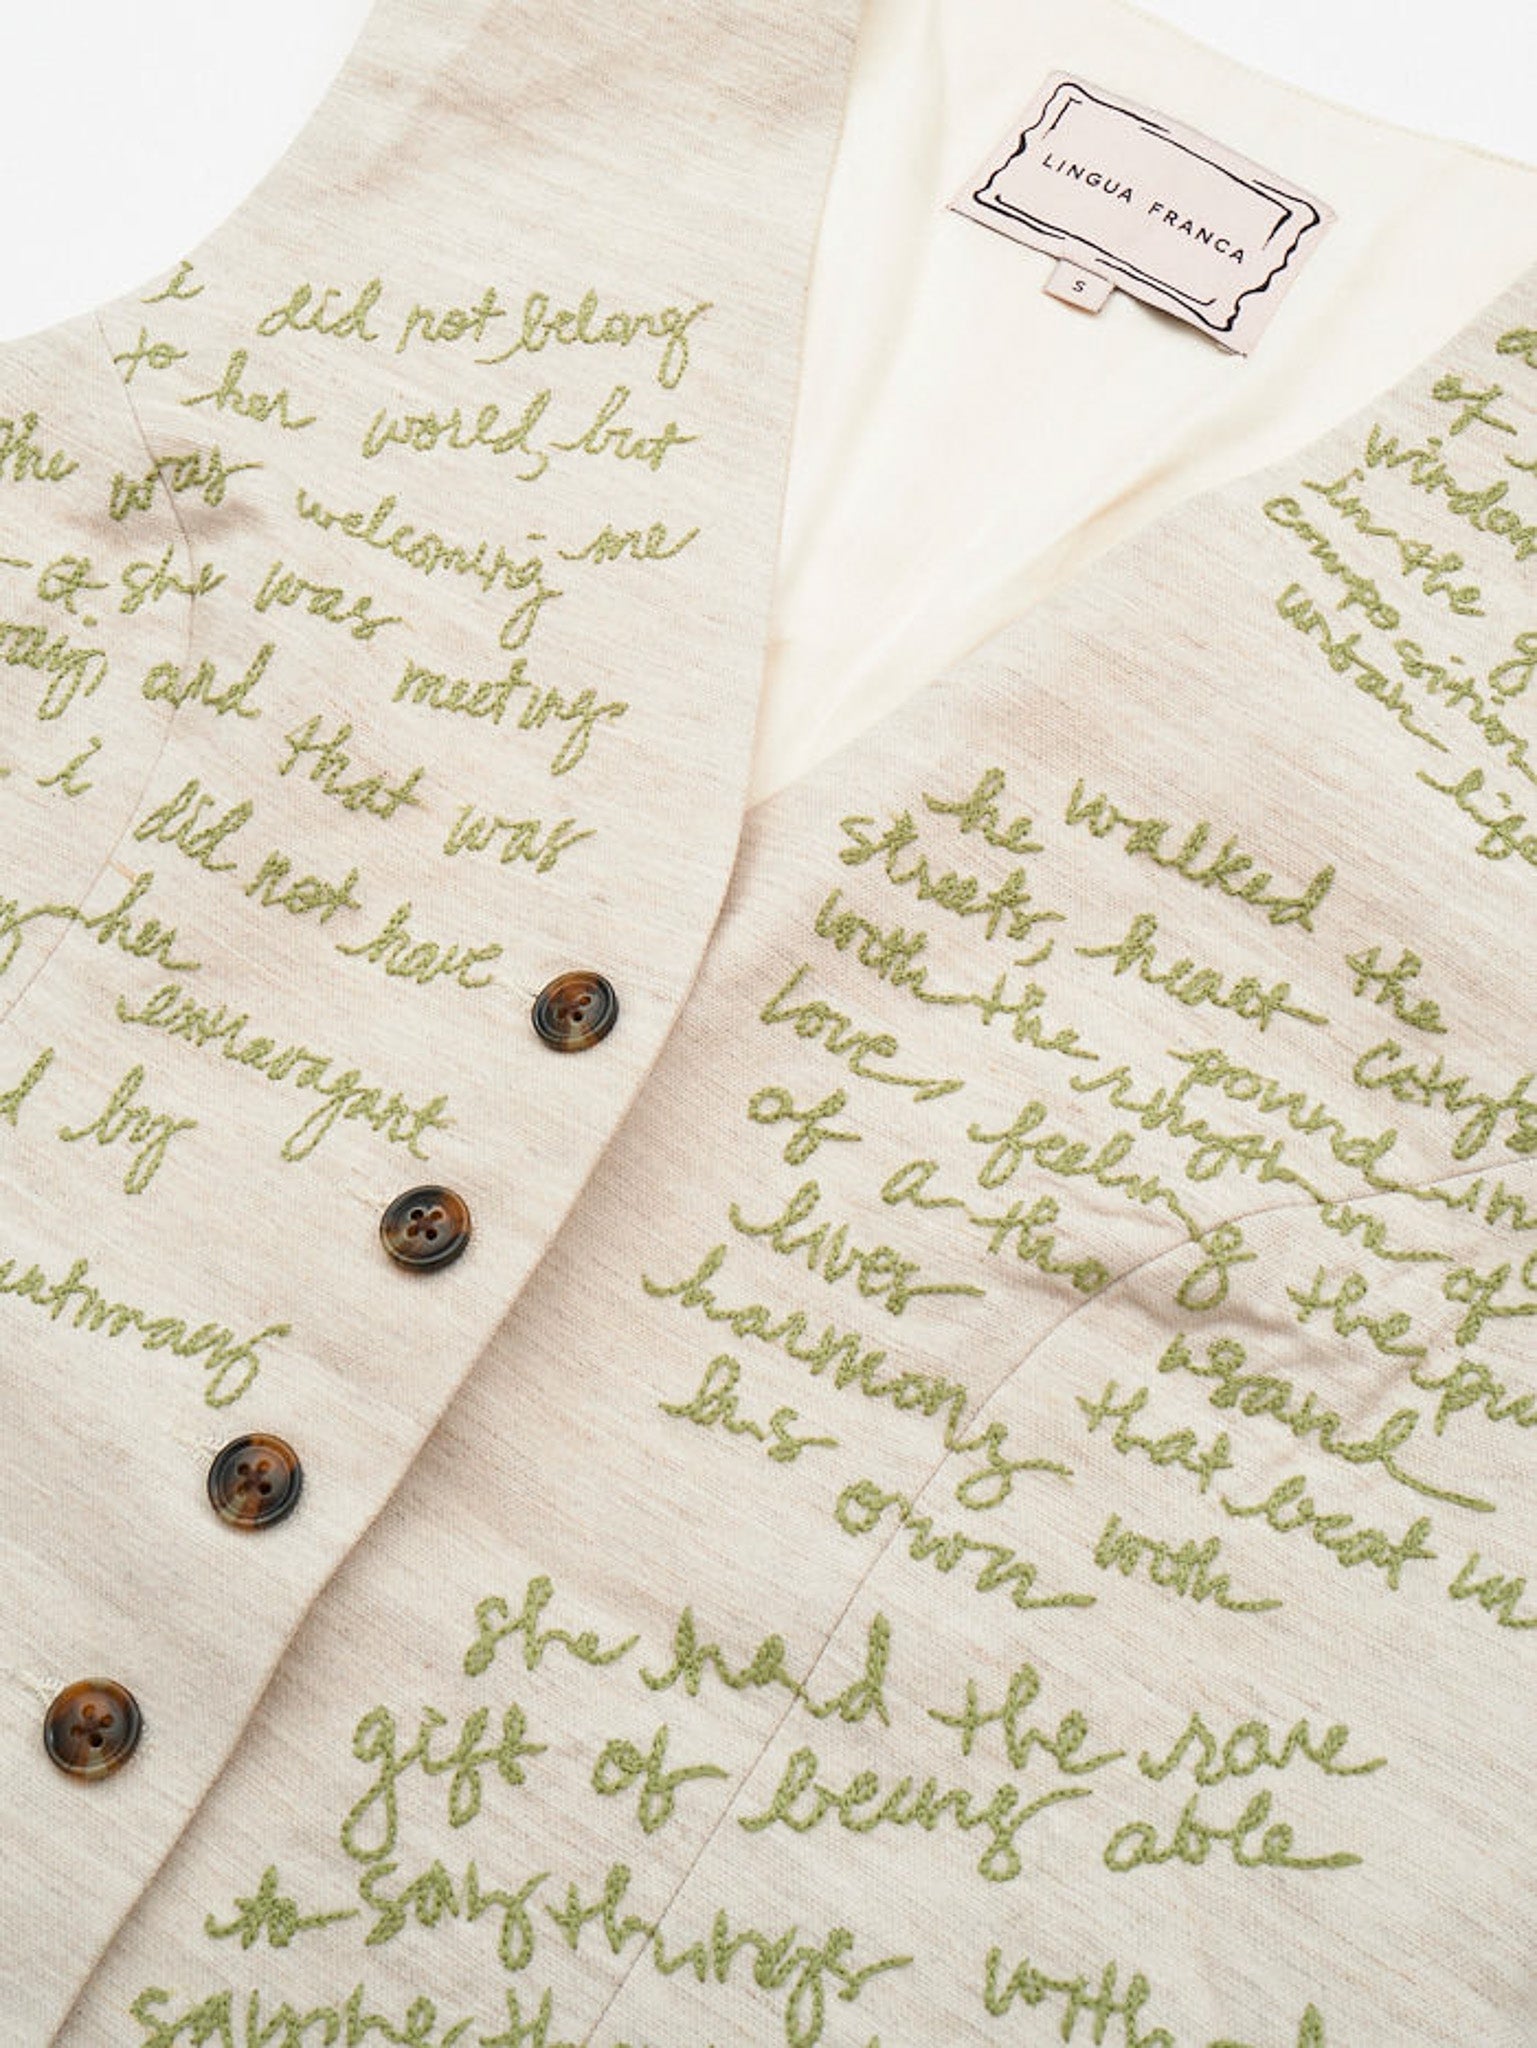 LINGUA FRANCA
S
i did not belong
to her world, but
she was welcoming me
- & she was meeting
and that was
- i did not have
her
extravagant
by
of
window
in the
composition
urban
life
he walked the
streets, heart pound in
with the rhythm of
love, feeling the
of a tho usand
lives that beat in
harmony with
his own
she had the rare
gift of being able
to say things with